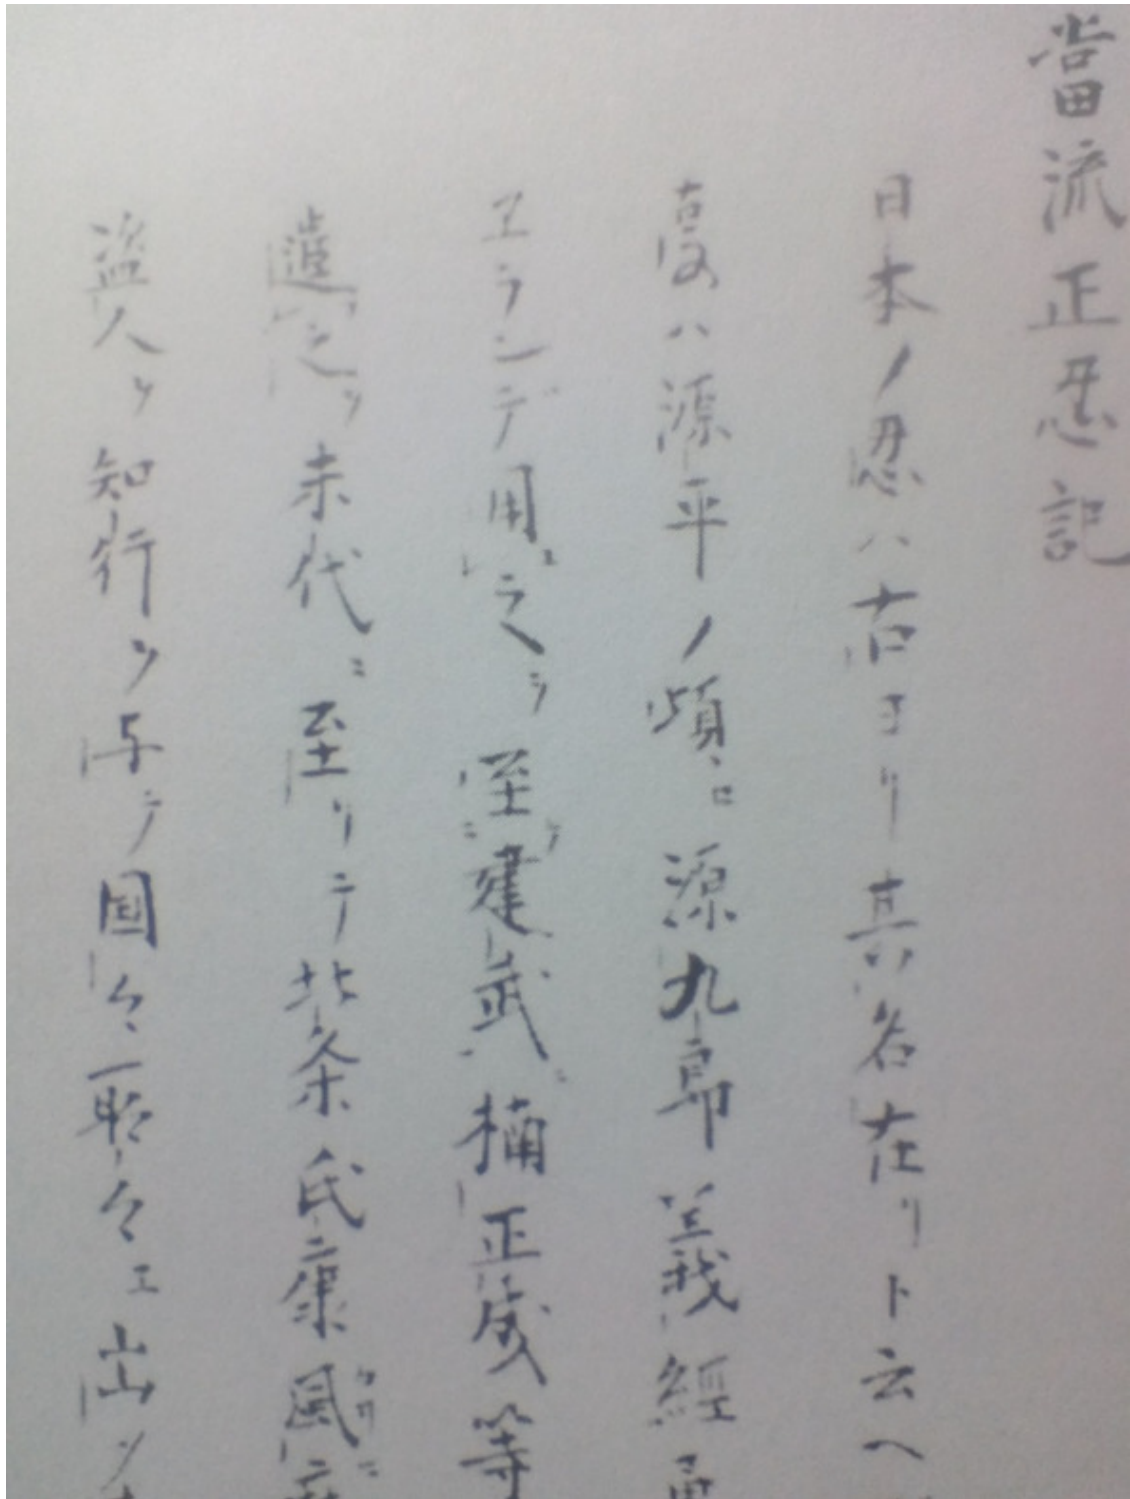 當流正忍記
日本ノ忍ハ古ヨリ其名在リト云ヘ
ハ源平ノ頃ニ源九郎義經
ヱランデ用之ラ至建武ニ楠正成等
遣之ヲ末代ニ至リテ北条氏康風
盗人ヲ知行ヲ与テ国々